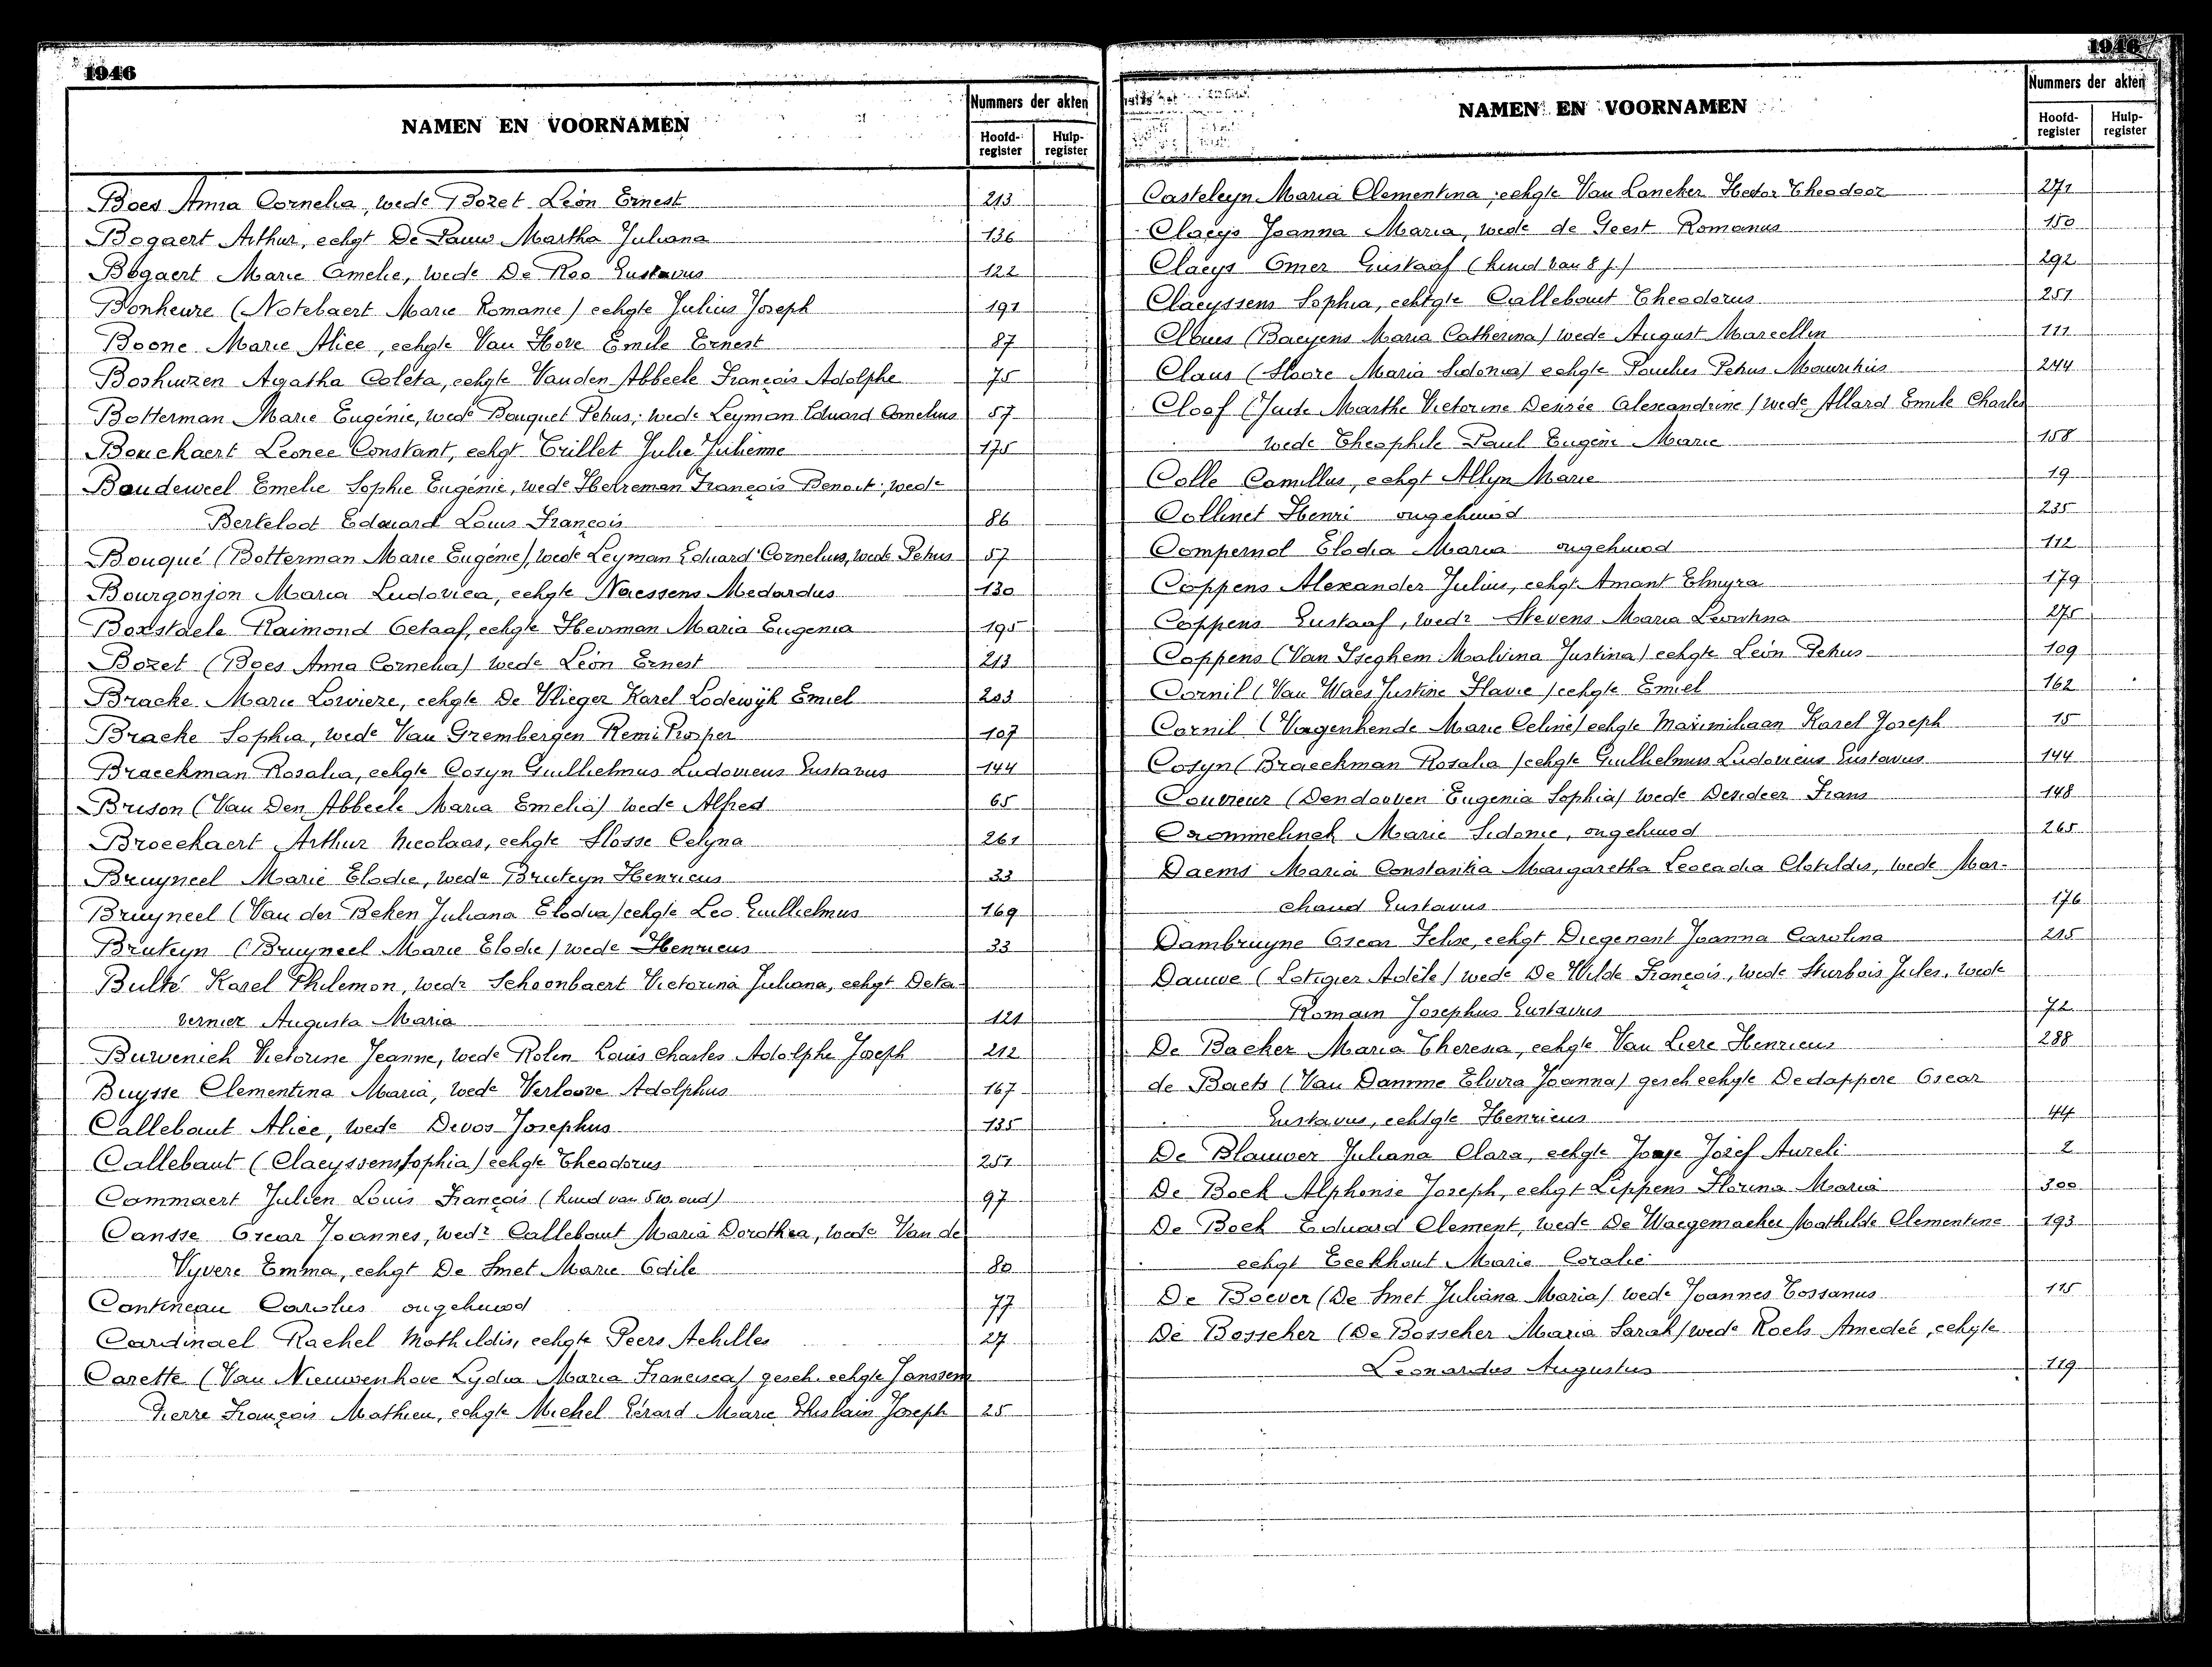 1946
NAMEN EN VOORNAMEN
Nummers der akten
Hoofd-register
Hulp-register
Boes Anna Cornelia, wede Bozet Léon Ernest 213
Bogaert Arthur, echgt De Pauw Martha Juliana 136
Bogaert Marie Amelie, wede De Roo Gustavus 122
Bonheure (Notebaert Marie Romanie) echgte Julius Joseph 191
Boone Marie Alice, echgte Van Hove Emile Ernest 87
Boshuizen Agatha Coleta, echgte Vanden Abbeele François Adolphe 75
Botterman Marie Eugénie, wede Bouquet Petrus; wede Leyman Eduard Cornelius 57
Bouckaert Leonce Constant, echgt Trillet Julie Julienne 175
Boudeweel Emelie Sophie Eugénie, wede Herreman François Benoit, wede
Berteloot Edouard Louis François 86
Bouqué (Botterman Marie Eugénie), wede Leyman Eduard Cornelius, wede Petrus 57
Bourgonjon Maria Ludovica, echgte Naessens Medardus 130
Boxstaele Raimond Octaaf, echgte Heirman Maria Eugenia 195
Bozet (Boes Anna Cornelia) wede Léon Ernest 213
Bracke Marie Lowieze, echgte De Vlieger Karel Lodewijk Emiel 203
Bracke Sophia, wede Van Grembergen Remi Prosper 107
Braeckman Rosalia, echgte Cosyn Guilhelmus Ludovicus Gustavus 144
Brison (Van Den Abbeele Maria Emelia) wede Alfred 65
Broeckaert Arthur Nicolaas, echgte Slosse Celyna 261
Bruyneel Marie Elodie, wede Bruteyn Henricus 33
Bruyneel (Van der Beken Juliana Elodia) echgte Leo Guilhelmus 169
Bruteyn (Bruyneel Marie Elodie) wede Henricus 33
Bulté Karel Philemon, wedr Schoonbaert Victorina Juliana, echgt Deta-
vernier Augusta Maria 121
Buvenich Victorine Jeanne, wede Rolin Louis Charles Adolphe Joseph 212
Buysse Clementina Maria, wede Verloove Adolphus 167
Callebaut Alice, wede Devos Josephus 135
Callebaut (Claeyssens Sophia) echgte Theodorus 251
Cammaert Julien Louis François (kind van 5 w. oud) 97
Cansse Oscar Joannes, wedr Callebaut Maria Dorothea, wede Van de
Vyvere Emma, echgt De Smet Marie Odile 80
Cantineau Carolus ongehuwd 77
Cardinael Rachel Mathildis, echgte Peers Achilles 27
Carette (Van Nieuwenhove Lydia Maria Francisca) gesch. echgte Janssens
Pierre François Mathieu, echgte Michel Gérard Marie Ghislain Joseph 25
1946
NAMEN EN VOORNAMEN
Nummers der akten
Hoofd-register
Hulp-register
Casteleyn Maria Clementina, echgte Van Loncker Hector Theodoor 271
Claeys Joanna Maria, wede de Geest Romanus 150
Claeys Omer Gustaaf (kind van 8 j.) 292
Claeyssens Sophia, echtgte Callebaut Theodorus 251
Claus (Baeyens Maria Catherina) wede August Marcellin 111
Claus (Stoore Maria Sidonia) echgte Petrus Mauritius 244
Cloof (Marthe Victorine Desirée Alexandrine) wede Allard Emile Charles
wede Theophile Paul Eugène Marie 158
Colle Camillus, echgt Allyn Marie 19
Collinet Henri ongehuwd 235
Compernol Elodia Maria ongehuwd 112
Coppens Alexander Julius, echgt Amant Elmyra 179
Coppens Gustaaf, wedr Stevens Maria Leontina 275
Coppens (Van Iseghem Malvina Justina) echgte Léon Petrus 109
Cornil (Van Waes Justine Flavie) echgte Emiel 162
Cornil (Vagenhende Marie Celine) echgte Maximiliaan Karel Joseph 15
Cosyn (Braeckman Rosalia) echgte Guilhelmus Ludovicus Gustavus 144
Couvreur (Dendooven Eugenia Sophia) wede Desideer Frans 148
Crommelinck Marie Sidonie, ongehuwd 265
Daems Maria Constantia Margaretha Leocadia Clotildis, wede Mar-
chand Gustavus 176
Dambruyne Oscar Felix, echgt Diegenant Joanna Carolina 215
Dauwe (Lotigier Adèle) wede De Wilde François, wede Sturbois Jules, wede
Romain Josephus Gustavus 72
De Backer Maria Theresia, echgte Van Liere Henricus 288
de Baets (Van Damme Elvira Joanna) gesch echgte Dedappere Oscar
Gustavus, echtgte Henricus 44
De Blauwer Juliana Clara, echgte Jozef Aureli 2
De Bock Alphonse Joseph, echgt Lippens Florina Maria 300
De Bock Eduard Clement, wede De Waegemaeker Mathilde Clementine 193
echgt Eeckhout Marie Coralie
De Boever (De Smet Juliana Maria) wede Joannes Cossanus 115
De Bosscher (De Bosscher Maria Sarah) wede Roels Amedeé, echgte
Leonardus Augustus 119